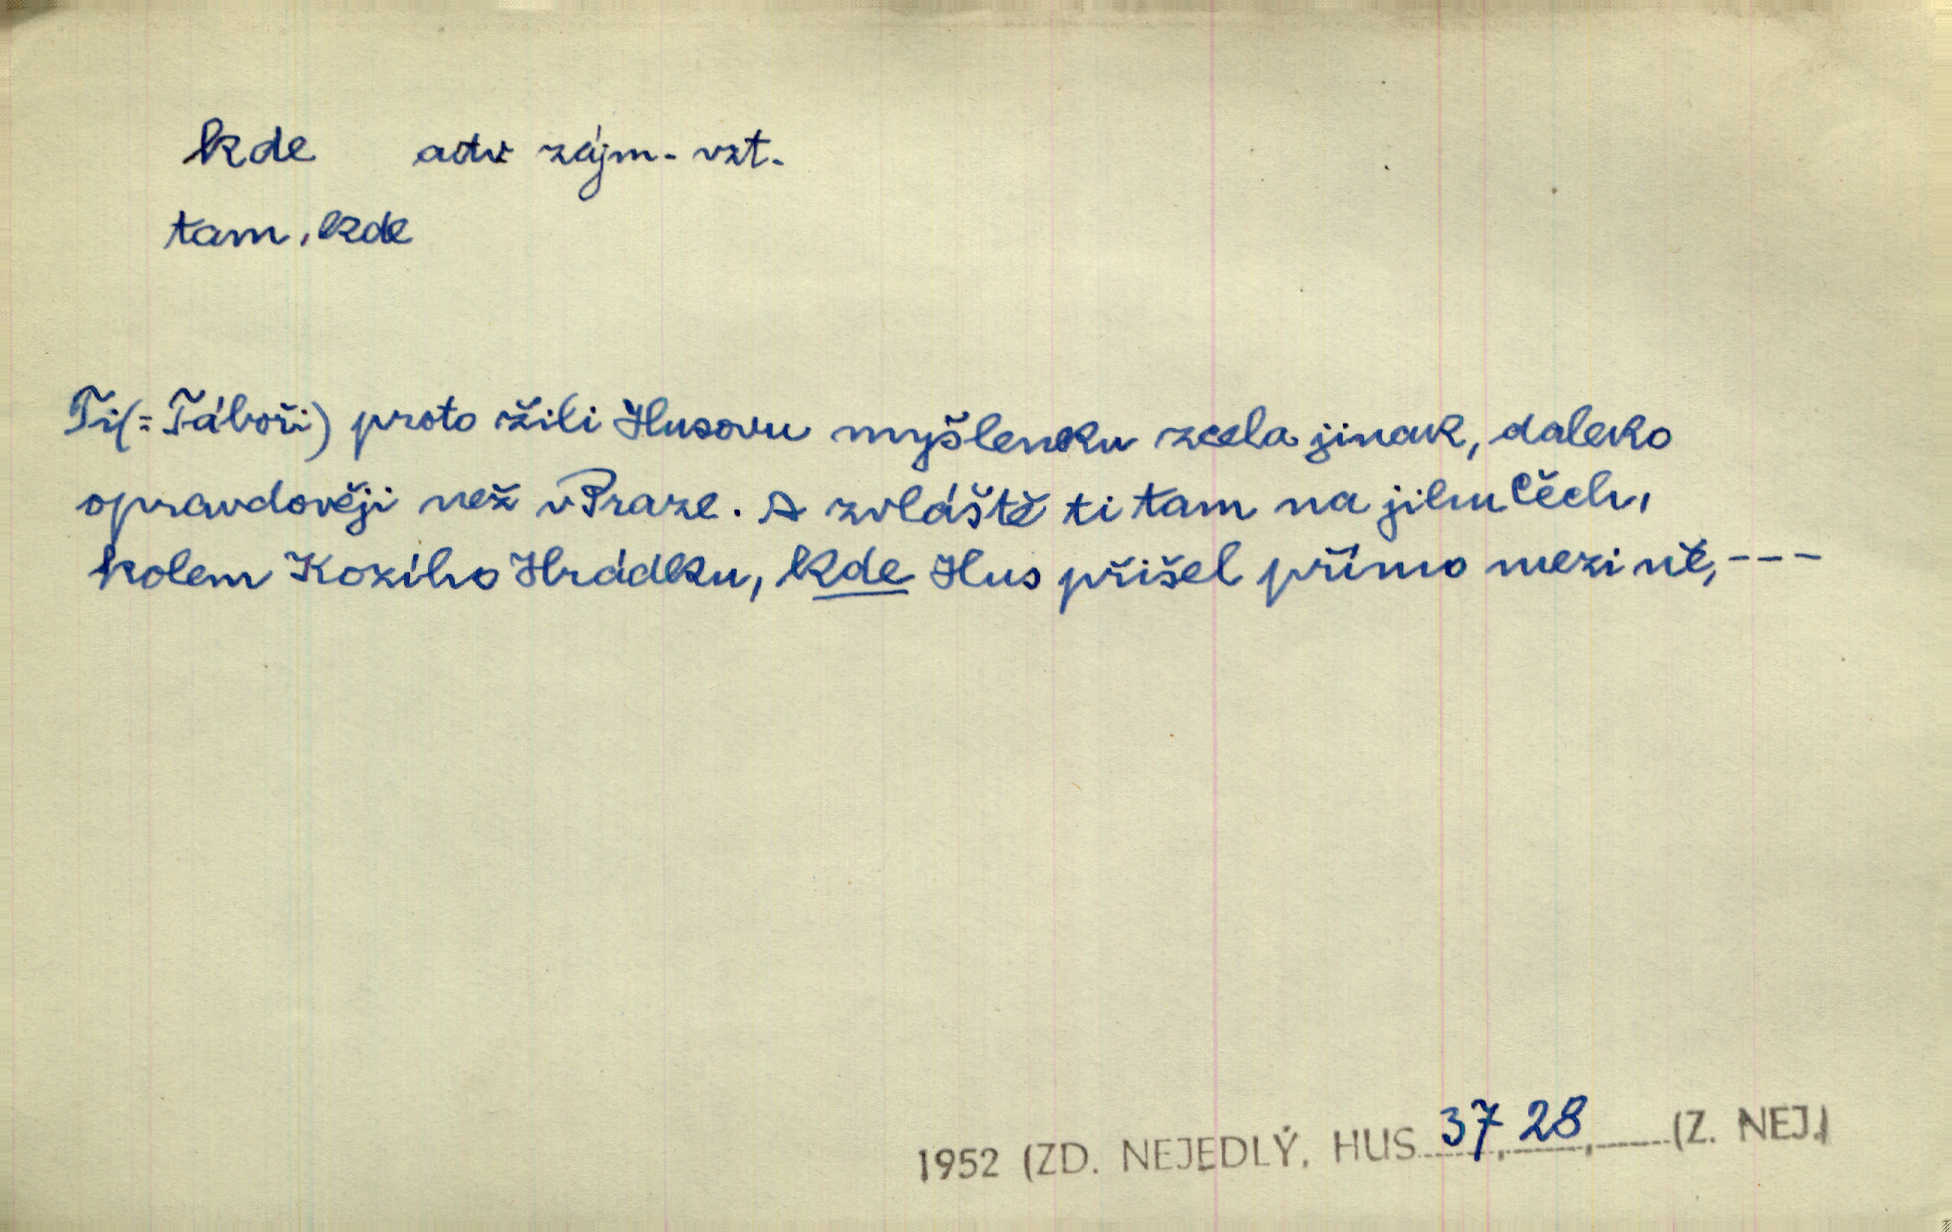 kde adv zájm. vzt.
tam, kde
Ti (= Táboři) proto žili Husovu myšlenku zcela jinak, daleko
opravdověji než v Praze. A zvláště ti tam na jihu Čech,
kolem Kozího Hrádku, kde Hus přišel přímo mezi ně, ---
1952 (ZD. NEJEDLÝ, HUS 37, 28, (Z. NEJ.)